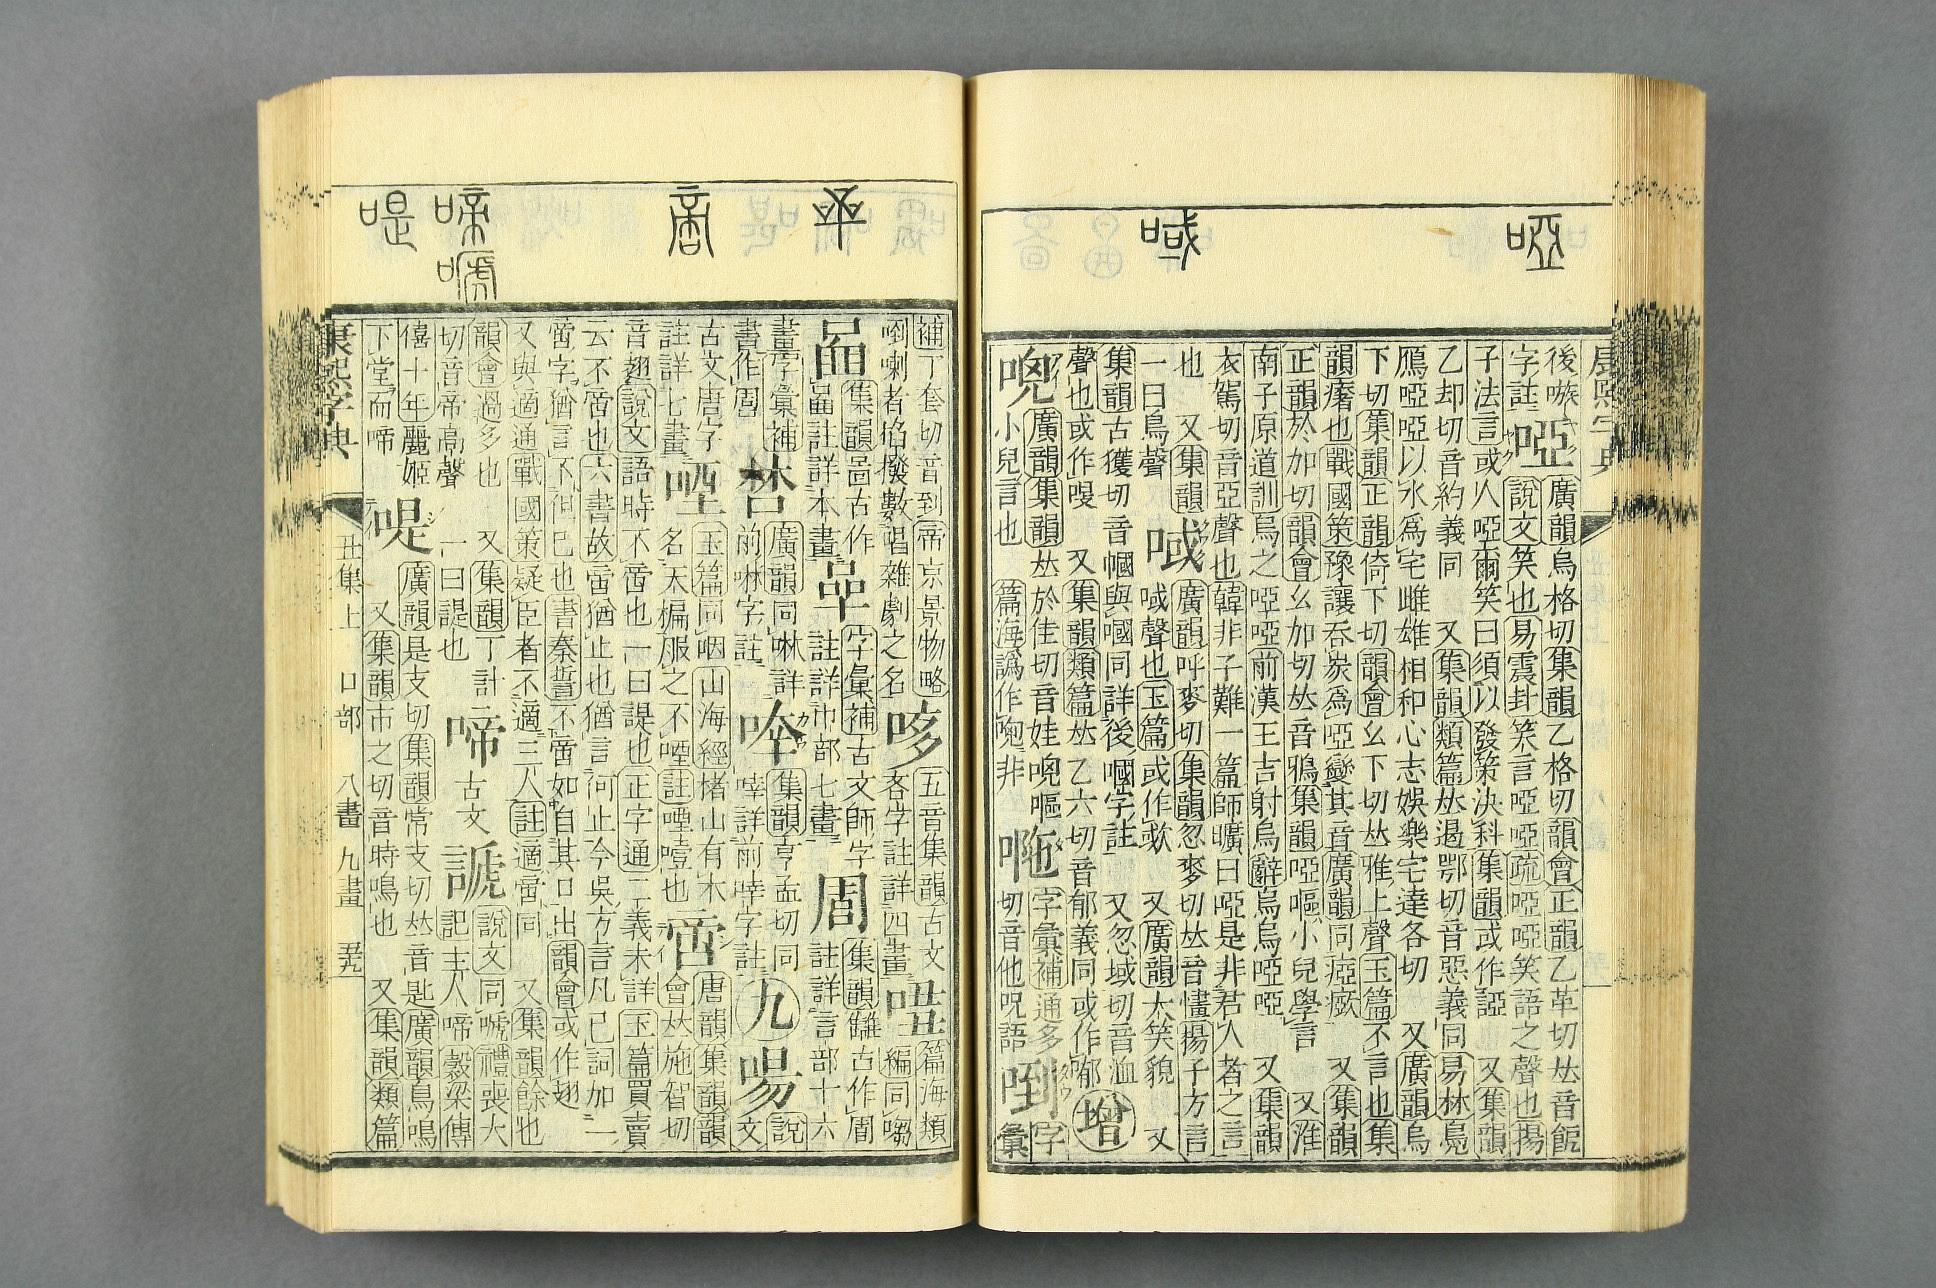 啞
㖪
後嗾字註 啞 廣韻烏格切集韻乙格切韻會正韻乙革切𠀤音餩
說文笑也易震卦笑言啞啞疏啞啞笑語之聲也揚
子法言或人啞爾笑曰須以發策決科集韻或作䛩 又集韻
乙却切音約義同 又集韻類篇𠀤遏鄂切音惡義同易林鳧
鴈啞啞以水爲宅雌雄相和心志娛樂宅達各切 又廣韻烏
下切集韻正韻倚下切韻會幺下切𠀤雅上聲玉篇不言也集
韻瘖也戰國策豫讓吞炭爲啞變其音廣韻同瘂 又集韻
正韻於加切韻會幺加切𠀤音鴉集韻啞嘔小兒學言 又淮
南子原道訓烏之啞啞前漢王吉射烏辭烏烏啞啞 又集韻
衣駕切音亞聲也韓非子難一篇師曠曰啞是非君人者之言
也 又集韻
㖪 廣韻呼麥切集韻忽麥切𠀤音㦎揚子方言
㖪聲也玉篇或作欪 又廣韻大笑貌 又
一曰鳥聲
集韻古獲切音幗與嘓同詳後嘓字註 又忽域切音洫
聲也或作嘎 又集韻類篇𠀤乙六切音郁義同或作喐 增
唲 廣韻集韻𠀤於佳切音娃唲嘔
小兒言也 篇海譌作㖠非
字彙補通多
切音他呪語
字
彙
康熙字典
𠱾
啻
啼
嗁
㖷
補丁套切音到帝京景物略
唎喇者掐撥數唱雜劇之名
哆 五音集韻古文
吝字註詳四畫
篇海類
編同
集韻嵒古作
嵒註詳本畫
字彙補古文師字
註詳巾部七畫
周 集韻讎古作周
註詳言部十六
畫字彙補
書作周
廣韻同啉詳
前啉字註
集韻亨孟切同
啈詳前啈字註
九 喝 說
文
古文唐字
註詳七畫
㖶 玉篇同咽山海經楮山有木
名天楄服之不㖶註㖶噎也
啻 唐韻集韻韻
會𠀤施智切
音翅說文語時不啻也一曰諟也正字通二義未詳玉篇買賣
云不啻也六書故啻猶止也猶言何止今吳方言凡已詞加一
啻字猶言不但已也書秦誓不啻如自其口出韻會或作翅
又與適通戰國策疑臣者不適三人註適啻同 又集韻餘也
韻會過多也 又集韻丁計
切音帝高聲 一曰諟也
啼 古文 䚦 說文同嗁禮喪大
記主人啼穀梁傳
僖十年麗姬
下堂而啼
㖷 廣韻是支切集韻常支切𠀤音匙廣韻鳥鳴
又集韻市之切音時鳴也 又集韻類篇
康熙字典 丑集上 口部 八畫 九畫